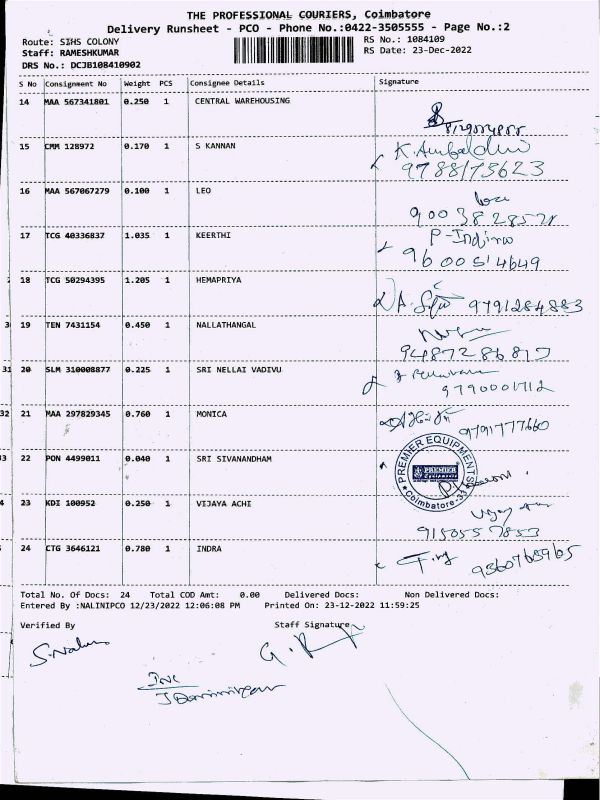 THE PROFESSIONAL COURIERS, Coimbatore
Delivery Runsheet - PCO - Phone No.:0422-3505555 - Page No.:2
Route: SIHS COLONY RS No.: 1084109
Staff: RAMESHKUMAR RS Date: 23-Dec-2022
DRS No.: DCJB108410902
S No Consignment No Weight PCS Consignee Details Signature
14 MAA 567341801 0.250 1 CENTRAL WAREHOUSING
15 CMM 128972 0.170 1 S KANNAN
9788173623
16 MAA 567067279 0.100 1 LEO
17 TCG 40336837 1.035 1 KEERTHI
9600514649
18 TCG 50294395 1.205 1 HEMAPRIYA
9791284883
3 19 TEN 7431154 0.450 1 NALLATHANGAL
9487286817
31 20 SLM 310008877 0.225 1 SRI NELLAI VADIVU
9790001712
32 21 MAA 297829345 0.760 1 MONICA
9791777660
3 22 PON 4499011 0.040 1 SRI SIVANANDHAM
PREMIER EQUIPMENTS
PREMIER
Coimbatore-33
4 23 KDI 100952 0.250 1 VIJAYA ACHI
9150557853
24 CTG 3646121 0.780 1 INDRA
9360768965
Total No. Of Docs: 24 Total COD Amt: 0.00 Delivered Docs: Non Delivered Docs:
Entered By :NALINIPCO 12/23/2022 12:06:08 PM Printed On: 23-12-2022 11:59:25
Verified By Staff Signature